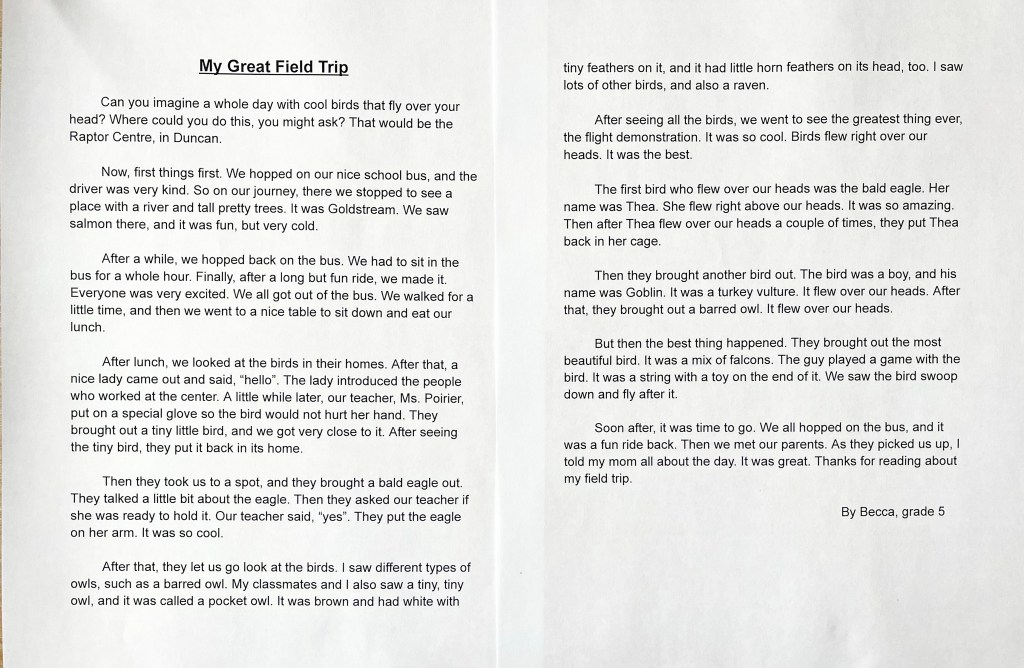 My Great Field Trip
Can you imagine a whole day with cool birds that fly over your
head? Where could you do this, you might ask? That would be the
Raptor Centre, in Duncan.
Now, first things first. We hopped on our nice school bus, and the
driver was very kind. So on our journey, there we stopped to see a
place with a river and tall pretty trees. It was Goldstream. We saw
salmon there, and it was fun, but very cold.
After a while, we hopped back on the bus. We had to sit in the
bus for a whole hour. Finally, after a long but fun ride, we made it.
Everyone was very excited. We all got out of the bus. We walked for a
little time, and then we went to a nice table to sit down and eat our
lunch.
After lunch, we looked at the birds in their homes. After that, a
nice lady came out and said, “hello”. The lady introduced the people
who worked at the center. A little while later, our teacher, Ms. Poirier,
put on a special glove so the bird would not hurt her hand. They
brought out a tiny little bird, and we got very close to it. After seeing
the tiny bird, they put it back in its home.
Then they took us to a spot, and they brought a bald eagle out.
They talked a little bit about the eagle. Then they asked our teacher if
she was ready to hold it. Our teacher said, “yes”. They put the eagle
on her arm. It was so cool.
After that, they let us go look at the birds. I saw different types of
owls, such as a barred owl. My classmates and I also saw a tiny, tiny
owl, and it was called a pocket owl. It was brown and had white with
tiny feathers on it, and it had little horn feathers on its head, too. I saw
lots of other birds, and also a raven.
After seeing all the birds, we went to see the greatest thing ever,
the flight demonstration. It was so cool. Birds flew right over our
heads. It was the best.
The first bird who flew over our heads was the bald eagle. Her
name was Thea. She flew right above our heads. It was so amazing.
Then after Thea flew over our heads a couple of times, they put Thea
back in her cage.
Then they brought another bird out. The bird was a boy, and his
name was Goblin. It was a turkey vulture. It flew over our heads. After
that, they brought out a barred owl. It flew over our heads.
But then the best thing happened. They brought out the most
beautiful bird. It was a mix of falcons. The guy played a game with the
bird. It was a string with a toy on the end of it. We saw the bird swoop
down and fly after it.
Soon after, it was time to go. We all hopped on the bus, and it
was a fun ride back. Then we met our parents. As they picked us up, I
told my mom all about the day. It was great. Thanks for reading about
my field trip.
By Becca, grade 5